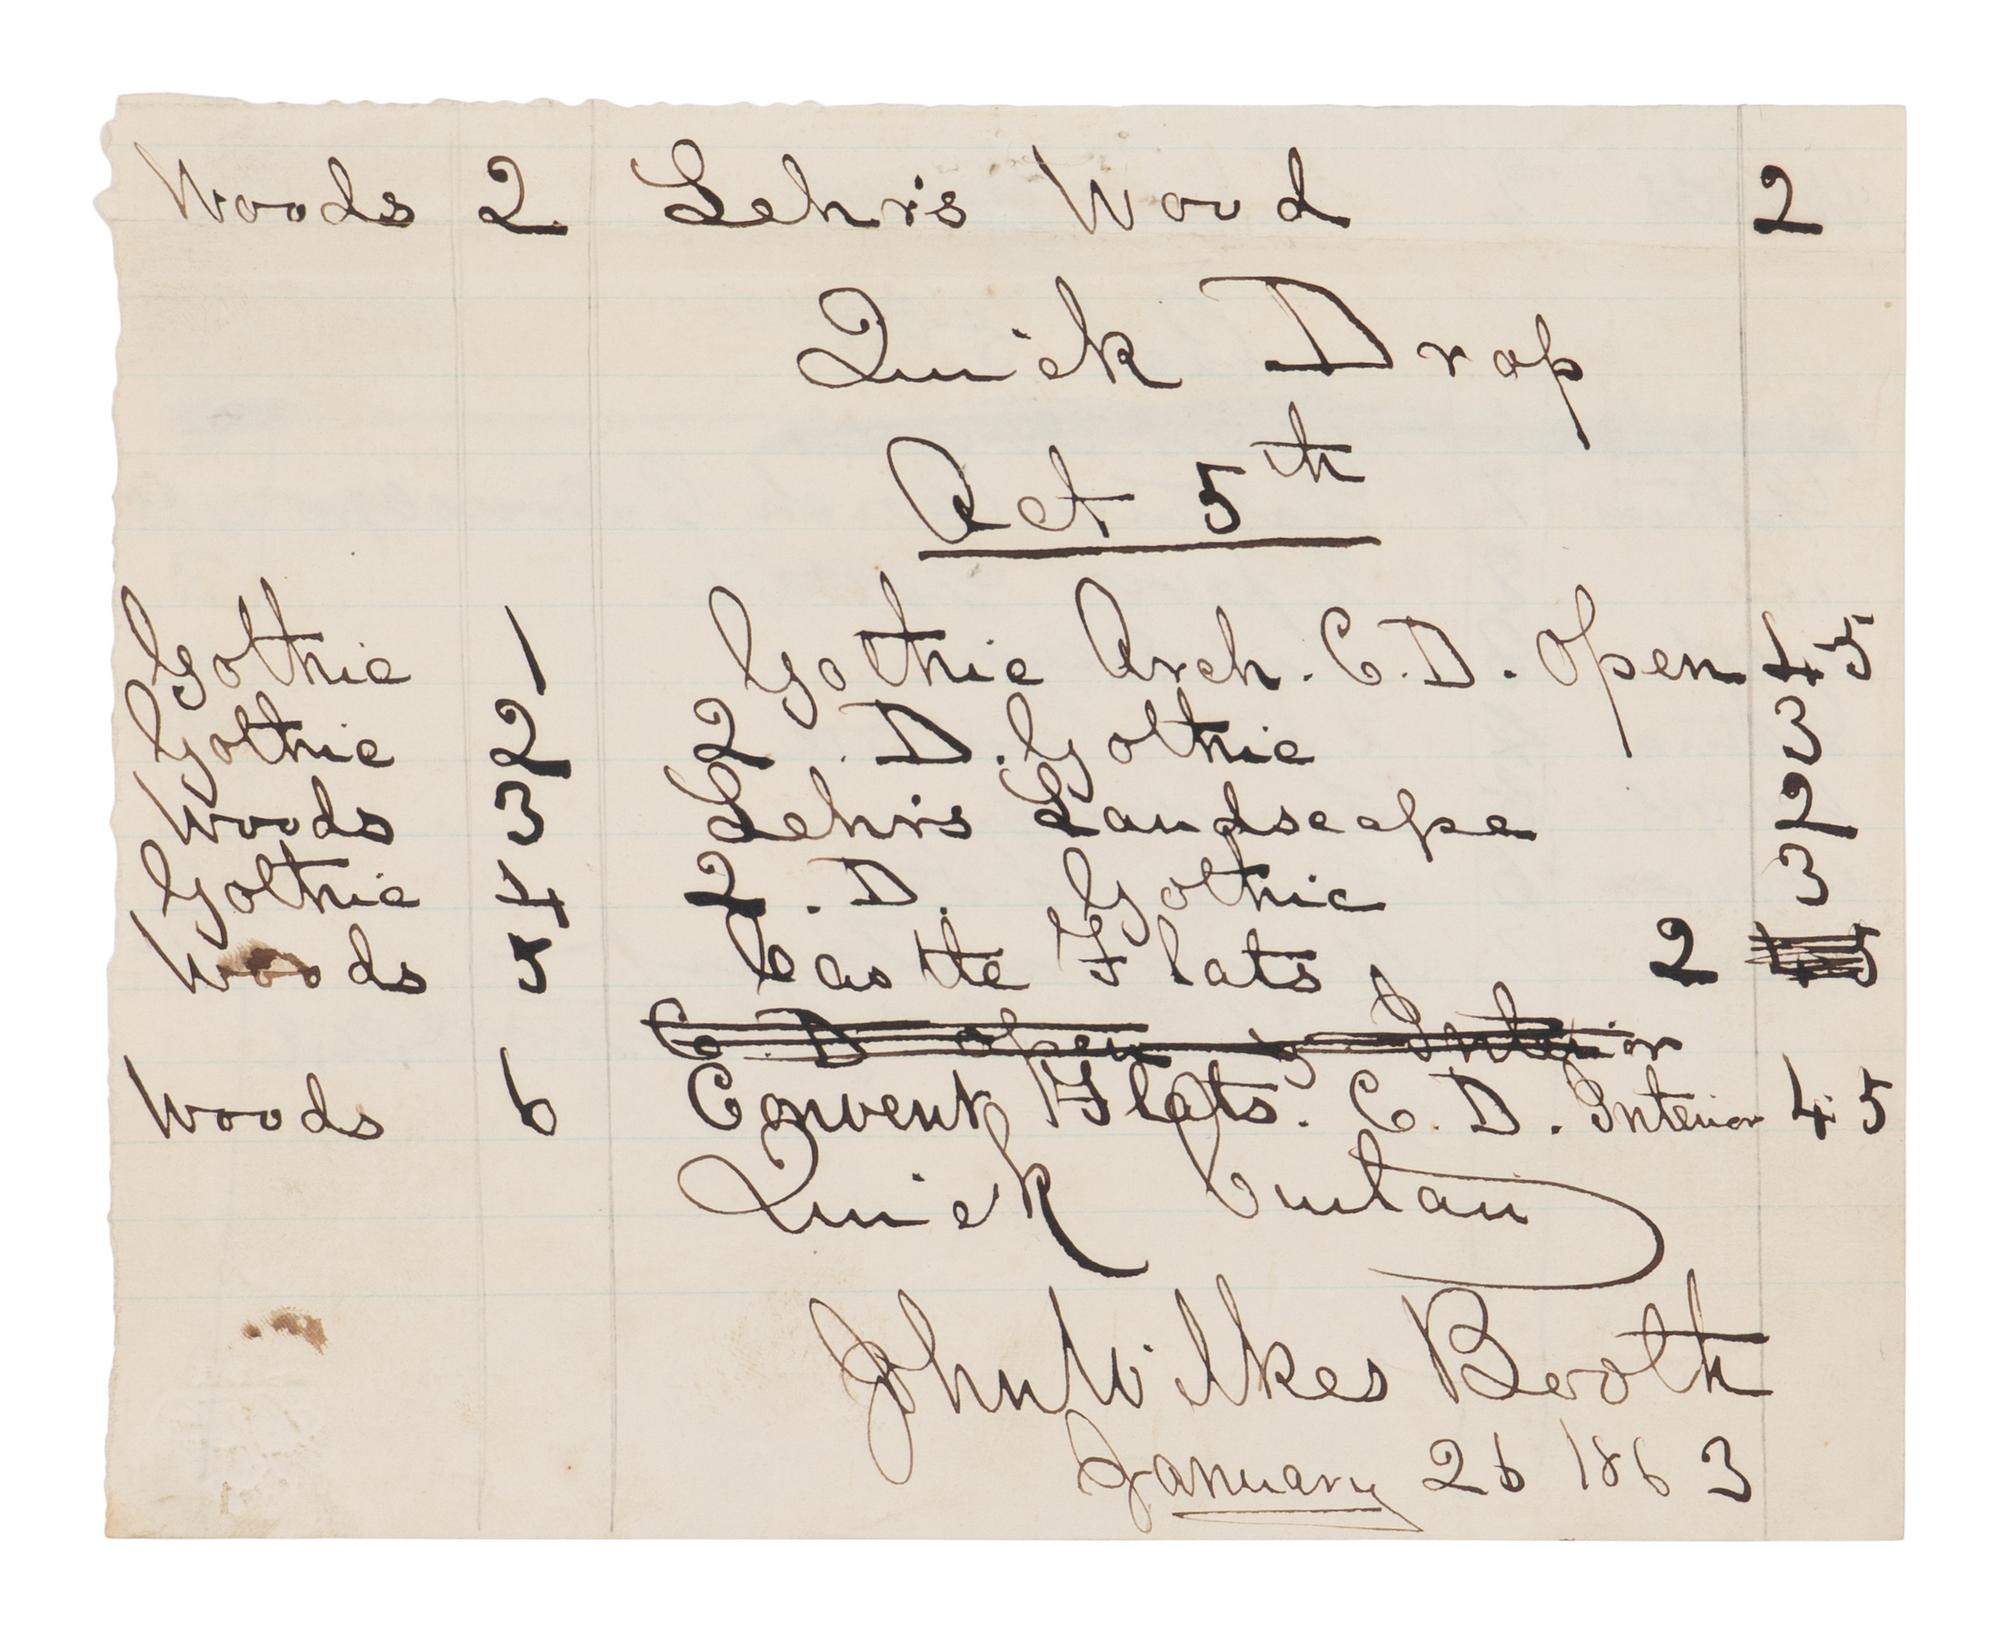 Woods 2 Lehr's Wood 2
Quick Drop
Act 5th
Gothic 1 Gothic Arch. C. D. Open 4 5
Gothic 2 2. D. Gothic 3
Woods 3 Lehr's Landscape 2
Gothic 4 2. D. Gothic 3
Woods 5 Castle Flats 2
C. D open Interior
Woods 6 Convent Flats. C. D. Interior 4 5
Quick Curtain
John Wilkes Booth
January 26 1863